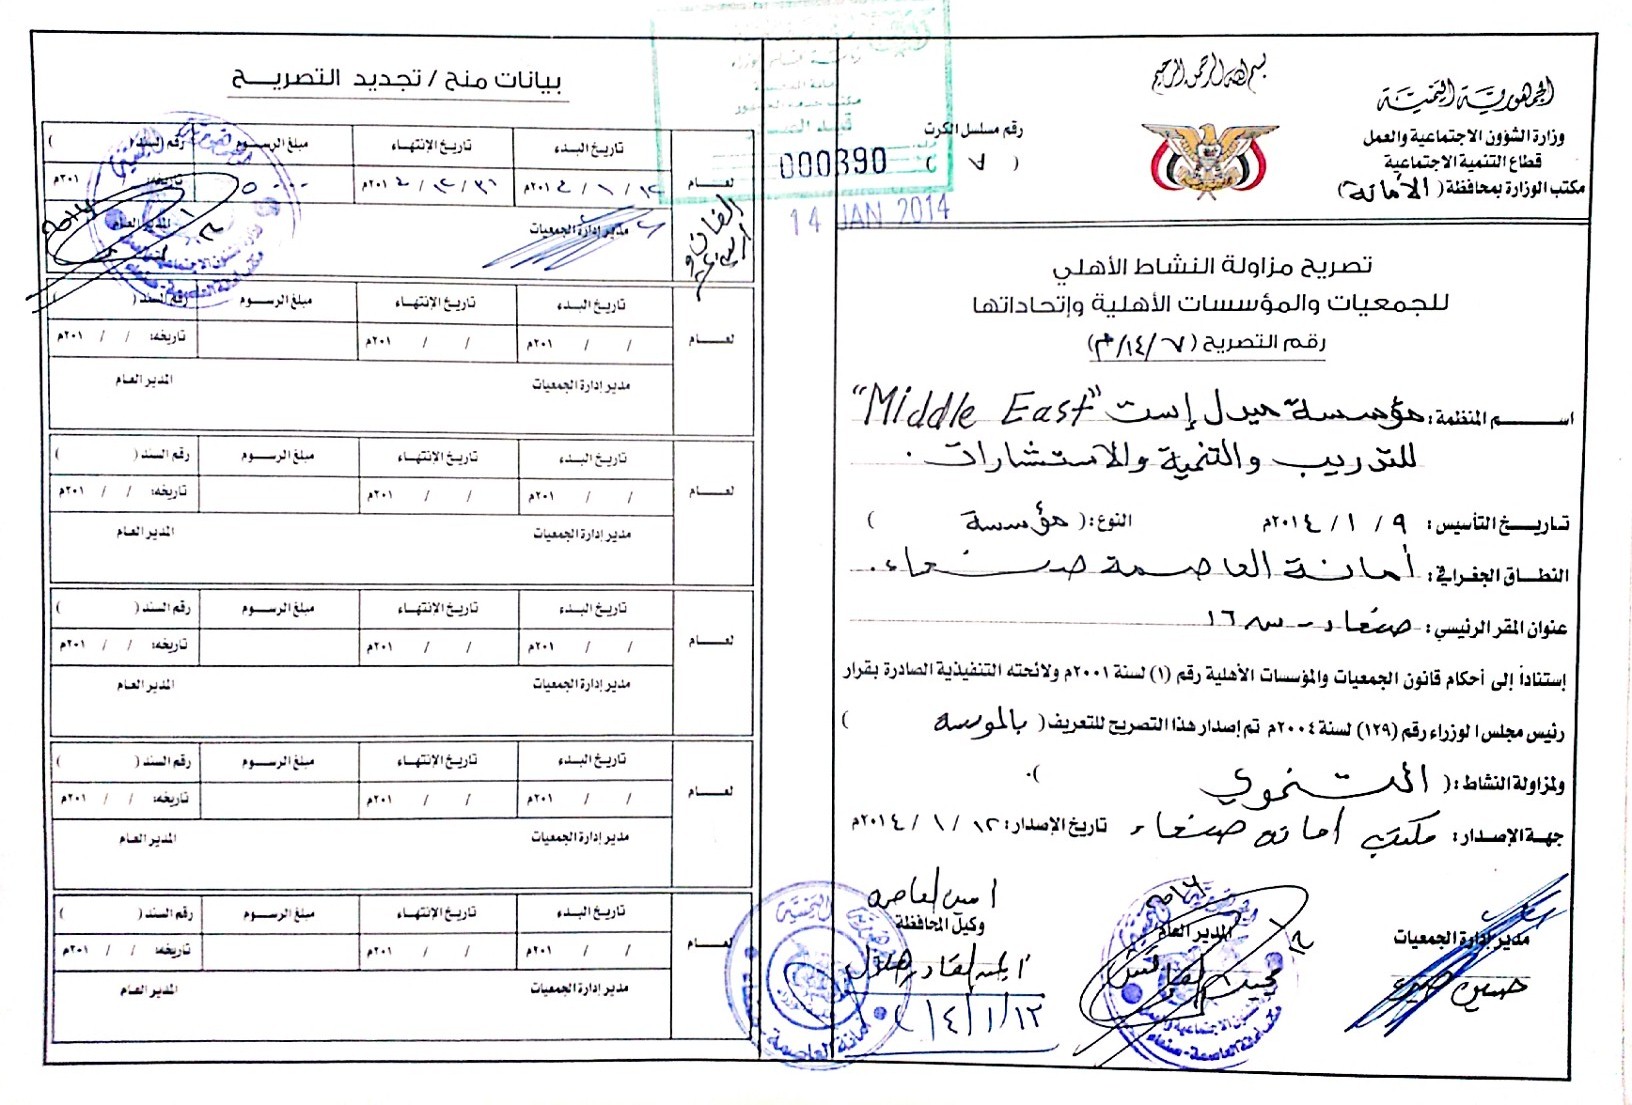 الجمهورية اليمنية
وزارة الشؤون الاجتماعية والعمل
قطاع التنمية الاجتماعية
مكتب الوزارة بمحافظة ( الأمانة )
بسم الله الرحمن الرحيم
رقم مسلسل الكرت
( ٧ )
000390
14 JAN 2014
تصريح مزاولة النشاط الأهلي
للجمعيات والمؤسسات الأهلية وإتحاداتها
رقم التصريح (٧ /١٤/م)
اسم المنظمة: مؤسسة ميدل إست "Middle East"
للتدريب والتنمية والاستشارات .
تاريخ التأسيس: ٩ / ١ / ٢٠١٤م النوع: ( مؤسسة )
النطاق الجغرافي: أمانة العاصمة صنعاء .
عنوان المقر الرئيسي: صنعاء - ش ١٦
إستناداً إلى أحكام قانون الجمعيات والمؤسسات الأهلية رقم (١) لسنة ٢٠٠١م ولائحته التنفيذية الصادرة بقرار
رئيس مجلس الوزراء رقم (١٢٩) لسنة ٢٠٠٤م تم إصدار هذا التصريح للتعريف ( بالمؤسسة )
ولمزاولة النشاط: ( التنموي ).
جهة الإصدار: مكتب أمانة صنعاء تاريخ الإصدار: ١٢ / ١ / ٢٠١٤م
مدير إدارة الجمعيات
المدير العام
امين العاصمة
وكيل المحافظة
١٢/١/١٤
بيانات منح / تجديد التصريح
لعام تاريخ البدء تاريخ الإنتهاء مبلغ الرسوم رقم السند ( )
١٢ / ١ / ٢٠١٤ ٣١ / ١٢ / ٢٠١٤ ٥٠٠٠ تاريخه: / / ٢٠١م
مدير إدارة الجمعيات المدير العام
لعام تاريخ البدء تاريخ الإنتهاء مبلغ الرسوم رقم السند ( )
/ / ٢٠١م / / ٢٠١م تاريخه: / / ٢٠١م
مدير إدارة الجمعيات المدير العام
لعام تاريخ البدء تاريخ الإنتهاء مبلغ الرسوم رقم السند ( )
/ / ٢٠١م / / ٢٠١م تاريخه: / / ٢٠١م
مدير إدارة الجمعيات المدير العام
لعام تاريخ البدء تاريخ الإنتهاء مبلغ الرسوم رقم السند ( )
/ / ٢٠١م / / ٢٠١م تاريخه: / / ٢٠١م
مدير إدارة الجمعيات المدير العام
لعام تاريخ البدء تاريخ الإنتهاء مبلغ الرسوم رقم السند ( )
/ / ٢٠١م / / ٢٠١م تاريخه: / / ٢٠١م
مدير إدارة الجمعيات المدير العام
لعام تاريخ البدء تاريخ الإنتهاء مبلغ الرسوم رقم السند ( )
/ / ٢٠١م / / ٢٠١م تاريخه: / / ٢٠١م
مدير إدارة الجمعيات المدير العام